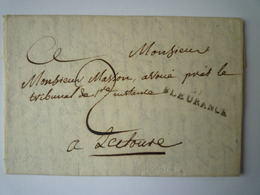 Monsieur
Monsieur Masson, avoué près le
tribunal de 1ère instance
FLEURANCE
a Lectoure